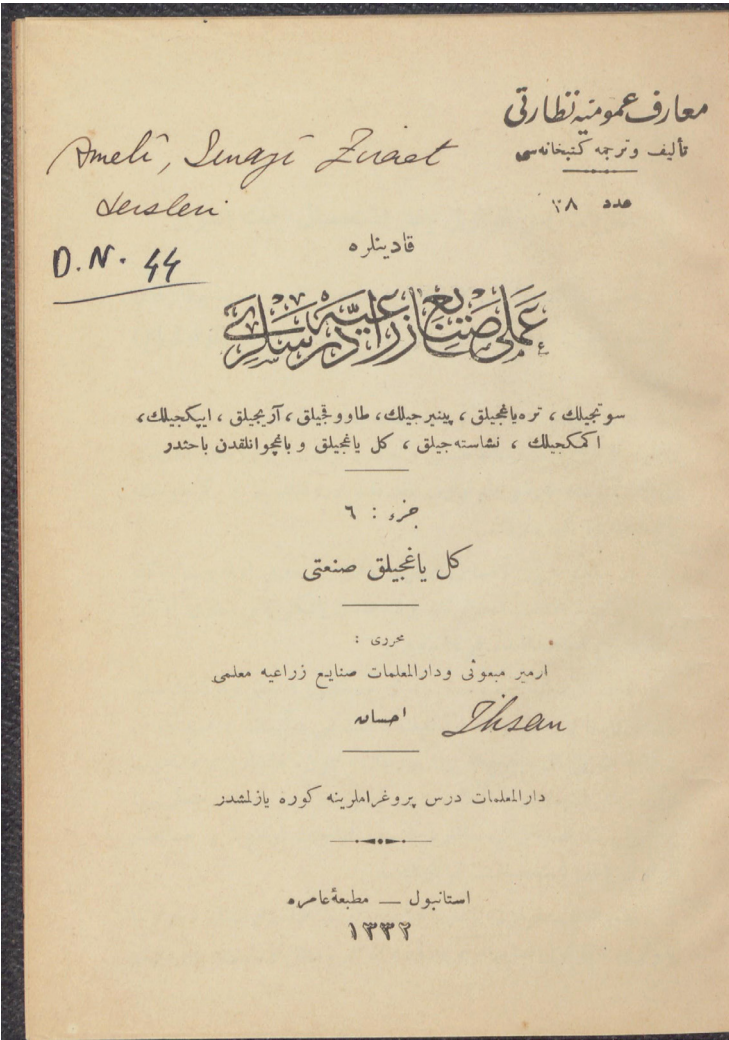 معارف عمومیه نظارتی
تألیف و ترجمه کتبخانه‌سی
عدد ٣٨
Amelî, Sınayî Ziraet
dersleri
D.N. 44
قادینلره
عملی صنایع زراعیه درسلری
سوتجیلك ، تره‌یاغجیلق ، پینیرجیلك ، طاووقجیلق ، آریجیلق ، ایپكجیلك ،
اكمكجیلك ، نشاسته‌جیلق ، كل یاغجیلق و باغچوانلقدن باحثدر
جزء : ٦
كل یاغجیلق صنعتی
محرری :
ازمیر مبعوثی ودارالمعلمات صنایع زراعیه معلمی
احسان
Ihsan
دارالمعلمات درس پروغراملرینه كوره یازلمشدر
استانبول — مطبعۀ عامره
١٣٣٢